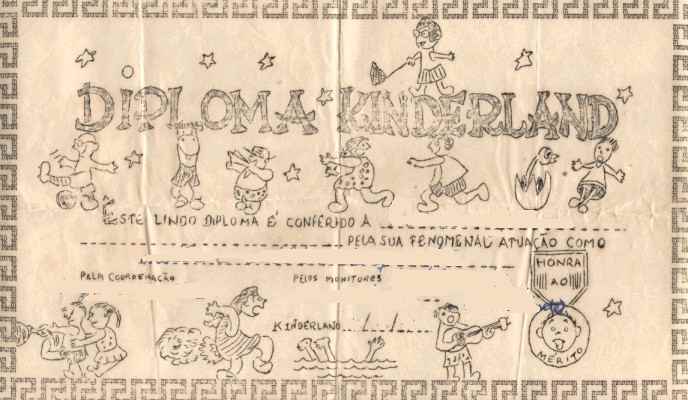 DIPLOMA KINDERLAND
ESTE LINDO DIPLOMA É CONFERIDO A
PELA SUA FENOMENAL ATUAÇÃO COMO
PELA COORDENAÇÃO PELOS MONITORES
HONRA
AO
MÉRITO
KINDERLAND / /